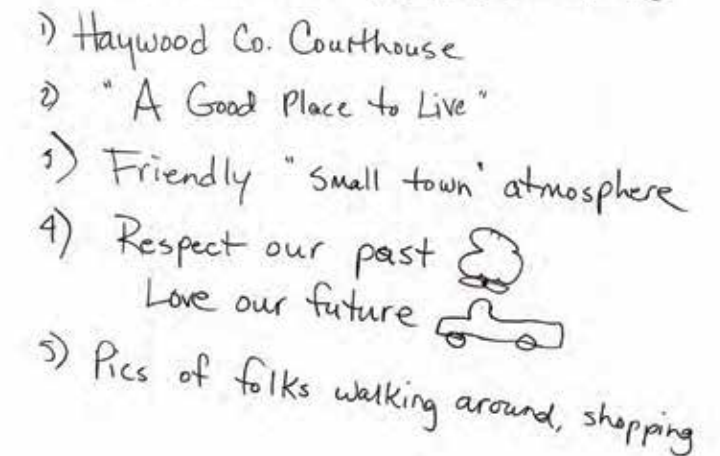 1) Haywood Co. Courthouse
2) "A Good Place to Live"
3) Friendly "small town" atmosphere
4) Respect our past
Love our future
5) Pics of folks walking around, shopping